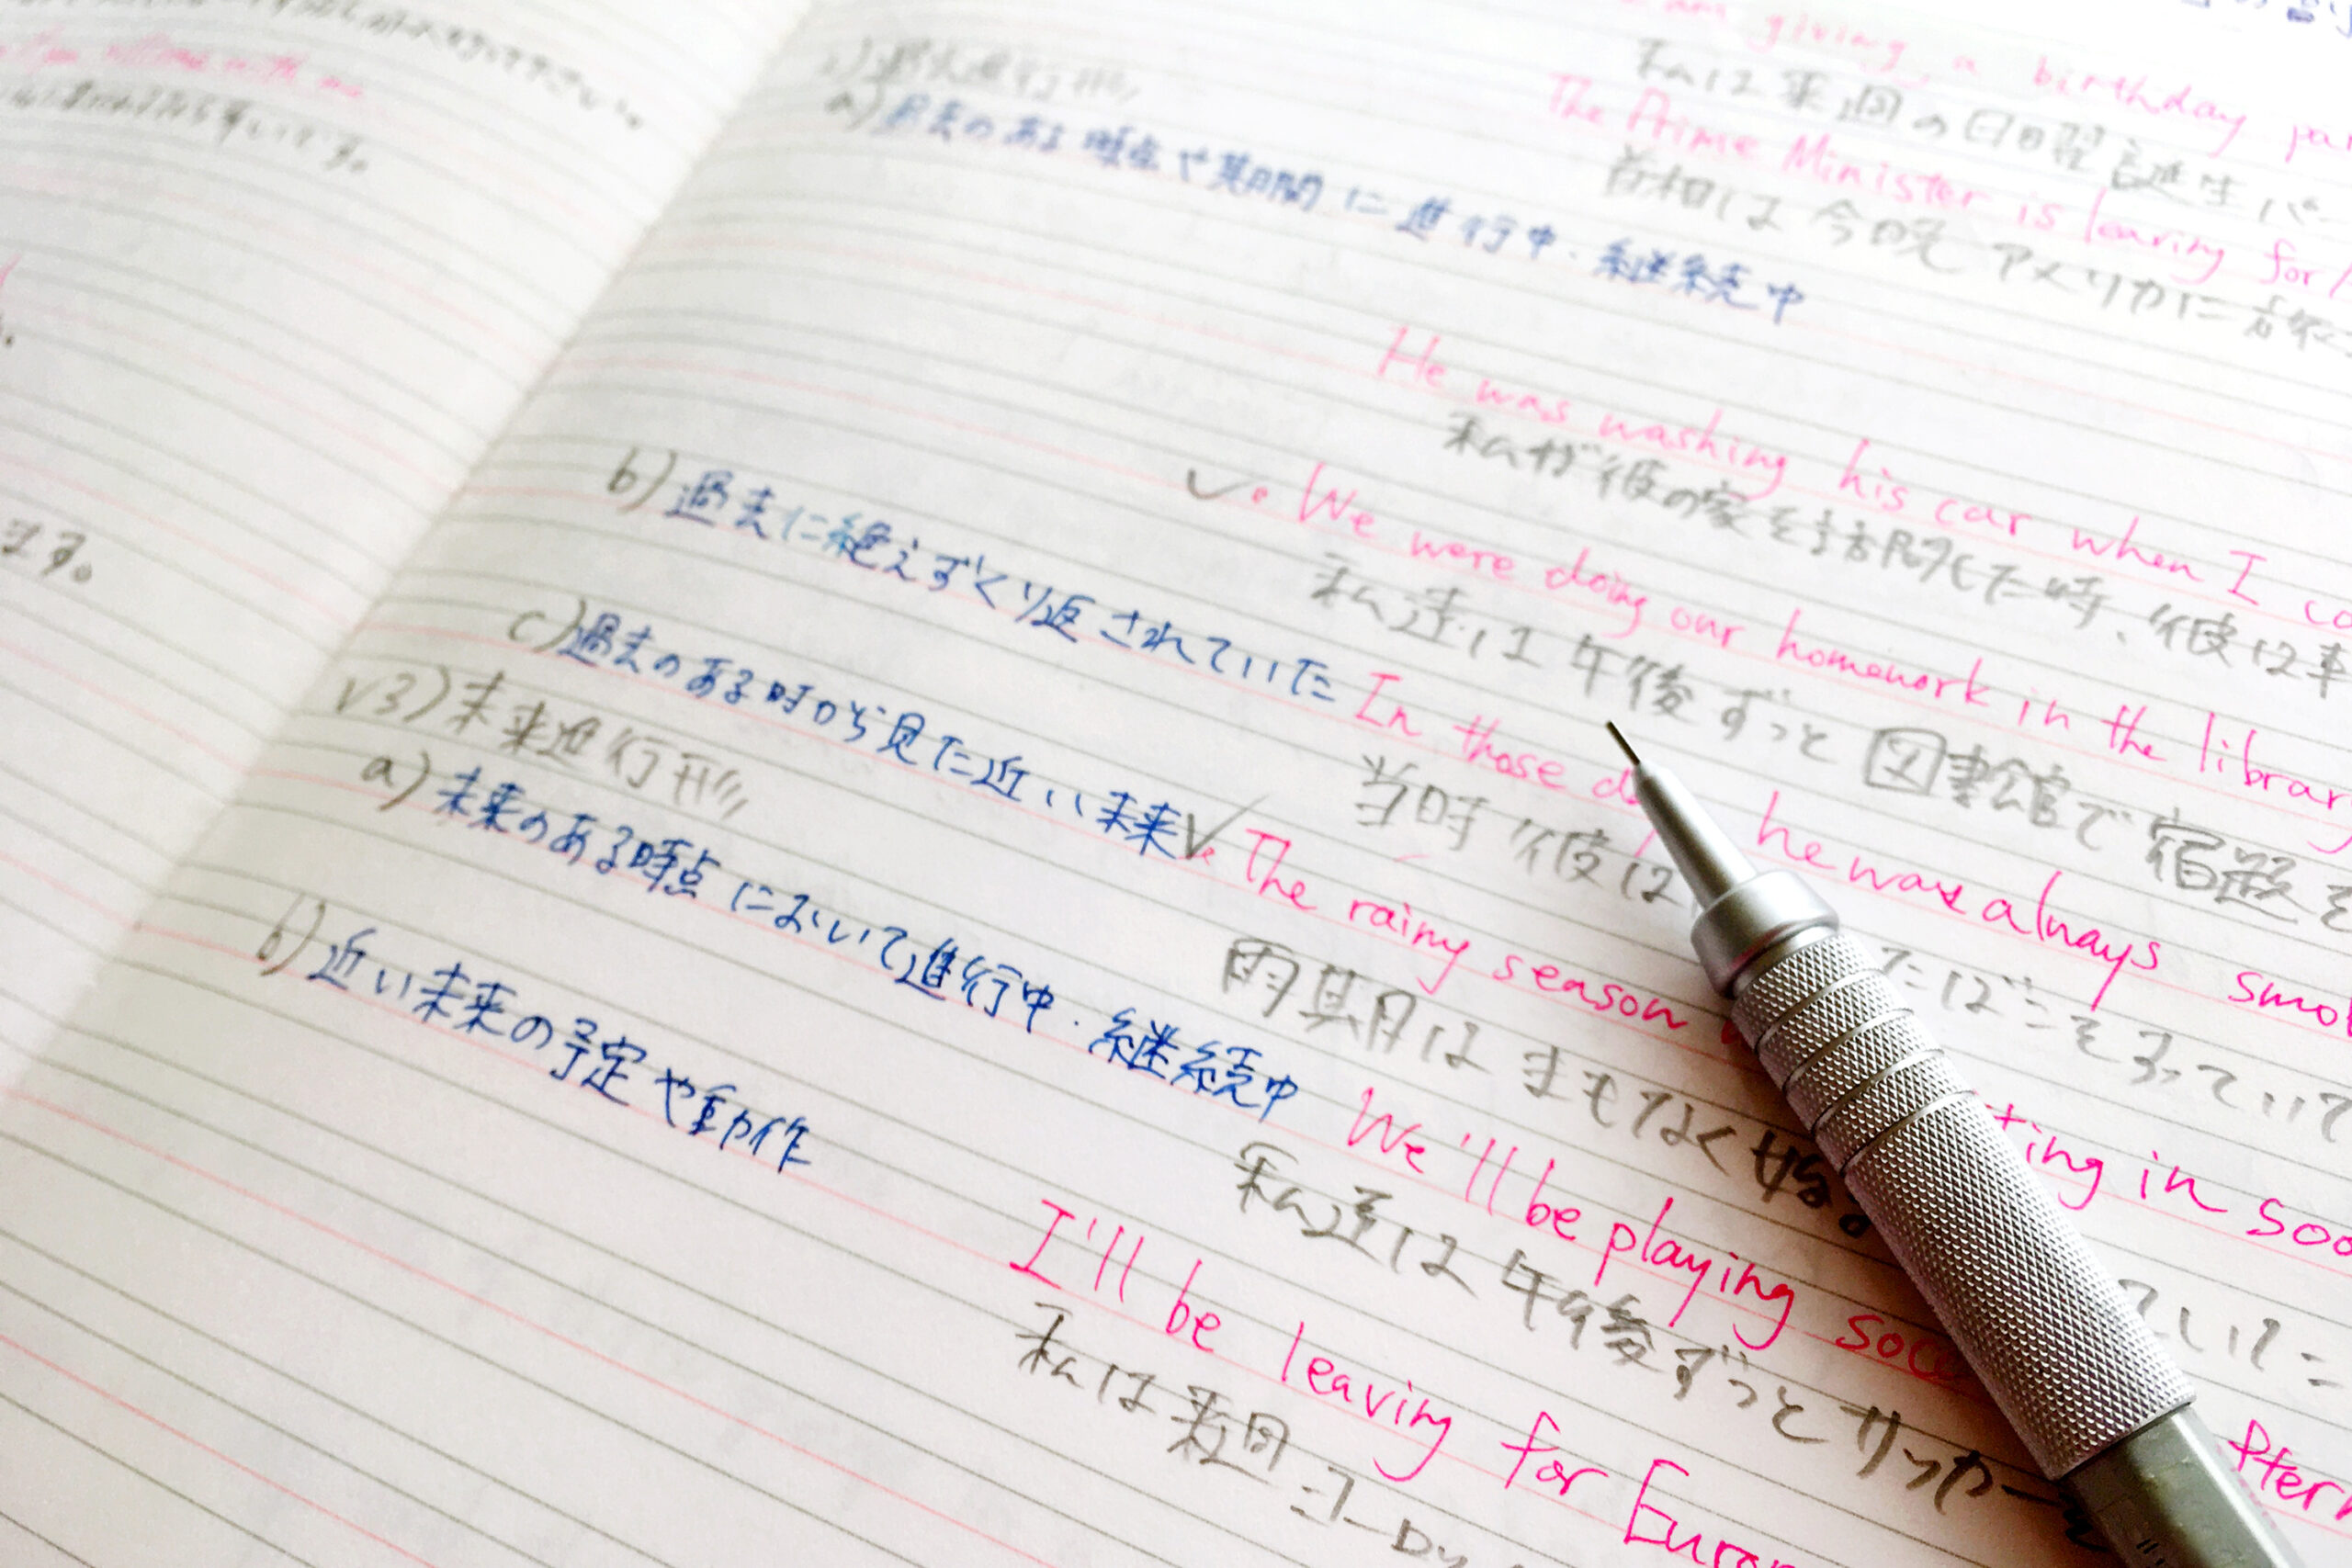 am giving a birthday
私は来週の日曜誕生パー
The Prime Minister is leaving for
首相は今晩アメリカに
過去進行形
a) 過去のある時点や期間に進行中・継続中
He was washing his car when I
私が彼の家を訪問した時、彼は車
We were doing our homework in the library
私達は午後ずっと図書館で宿題を
b) 過去に絶えずくり返されていた
In those he was always
当時彼は たばこをすっていて
c) 過去のある時から見た近い未来
The rainy season ting in
雨期はまもなく始 ていた
3) 未来進行形
a) 未来のある時点において進行中・継続中
We'll be playing
私達は午後ずっとサッカーを
b) 近い未来の予定や動作
I'll be leaving for
私は来週
ます。